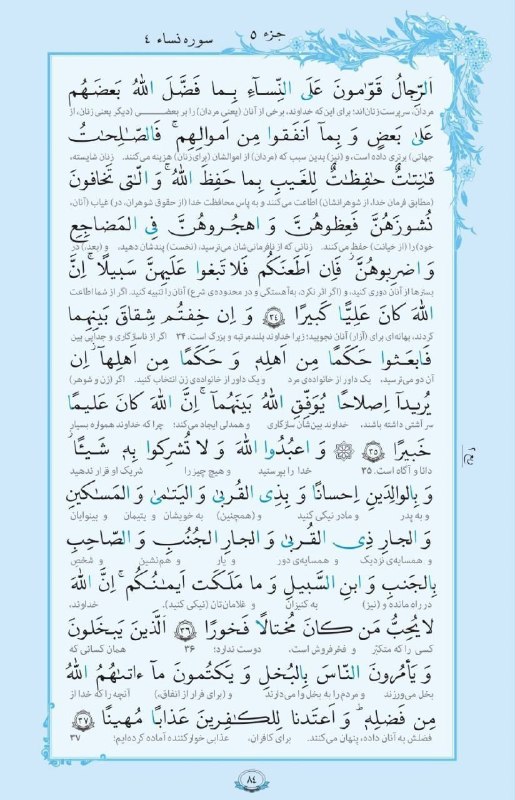 جزء ۵
سوره نساء ۴
اَلرِّجالُ قَوّٰمونَ عَلَى النِّسآءِ بِما فَضَّلَ اللهُ بَعضَهُم
مردان، سرپرست زنان‌اند؛ برای این‌که خداوند، برخی از آنان (یعنی مردان) را بر بعضی (دیگر یعنی زنان، از
عَلىٰ بَعضٍ وَ بِمآ اَنفَقوا مِن اَموالِهِم ۚ فَالصّٰلِحٰتُ
جهاتی) برتری داده است، و (نیز) بدین سبب که (مردان) از اموالشان (برای زنان) هزینه می‌کنند. زنان شایسته،
قٰنِتٰتٌ حٰفِظٰتٌ لِلغَيبِ بِما حَفِظَ اللهُ ۚ وَ الّٰتى تَخافونَ
(مطابق فرمان خدا، از شوهرانشان) اطاعت می‌کنند و به پاس محافظت خدا (از حقوق شوهران، در) غیاب (آنان،
نُشوزَهُنَّ فَعِظوهُنَّ وَ اهجُروهُنَّ فِى المَضاجِعِ
خود) را (از خیانت) حفظ می‌کنند. زنانی که از نافرمانی‌شان می‌ترسید، (نخست) پندشان دهید، و (بعد،) در
وَ اضرِبوهُنَّ ۖ فَاِن اَطَعنَكُم فَلا تَبغوا عَلَيهِنَّ سَبيلًا ۗ اِنَّ
بسترها از آنان دوری کنید، و (اگر اثر نکرد، به‌آهستگی و در محدوده‌ی شرع) آنان را تنبیه کنید. اگر از شما اطاعت
اللهَ كانَ عَلِيًّا كَبيرًا ۳۴ وَ اِن خِفتُم شِقاقَ بَينِهِما
کردند، بهانه‌ای برای (آزار) آنان نجویید؛ زیرا خداوند بلندمرتبه و بزرگ است. ۳۴ اگر از ناسازگاری و جدایی بین
فَابعَثوا حَكَمًا مِن اَهلِه وَ حَكَمًا مِن اَهلِهآ اِن
آن دو می‌ترسید، یک داور از خانواده‌ی مرد و یک داور از خانواده‌ی زن انتخاب کنید. اگر (زن و شوهر)
يُريدآ اِصلاحًا يُوَفِّقِ اللهُ بَينَهُمآ ۗ اِنَّ اللهَ كانَ عَليمًا
سر آشتی داشته باشند، خداوند بین‌شان سازگاری و همدلی ایجاد می‌کند؛ چرا که خداوند همواره بسیار
خَبيرًا ۳۵ وَ اعبُدُوا اللهَ وَ لا تُشرِكوا بِه شَيئًا ۖ
دانا و آگاه است. ۳۵ خدا را بپرستید و هیچ چیز را شریک او قرار ندهید
وَ بِالوالِدَينِ اِحسانًا وَ بِذِى القُربىٰ وَ اليَتٰمىٰ وَ المَسٰكينِ
و به پدر و مادر نیکی کنید و (همچنین) به خویشان و یتیمان و بینوایان
وَ الجارِ ذِى القُربىٰ وَ الجارِ الجُنُبِ وَ الصّاحِبِ
و همسایه‌ی نزدیک و همسایه‌ی دور و یار و هم‌نشین و شخص
بِالجَنبِ وَ ابنِ السَّبيلِ وَ ما مَلَكَت اَيمٰنُكُم ۗ اِنَّ اللهَ
در راه مانده و (نیز) به کنیزان و غلامان‌تان (نیکی کنید). خداوند،
لا يُحِبُّ مَن كانَ مُختالًا فَخورًا ۳۶ الَّذينَ يَبخَلونَ
کسی را که متکبّر و فخرفروش است، دوست ندارد؛ ۳۶ همان کسانی که
وَ يَأمُرونَ النّاسَ بِالبُخلِ وَ يَكتُمونَ مآ ءاتىٰهُمُ اللهُ
بخل می‌ورزند و مردم را به بخل وا می‌دارند و (برای فرار از انفاق،) آنچه را که خدا از
مِن فَضلِه ۗ وَ اَعتَدنا لِلكٰفِرينَ عَذابًا مُهينًا ۳۷
فضلش به آنان داده، پنهان می‌کنند. برای کافران، عذابی خوارکننده آماده کرده‌ایم؛ ۳۷
۸۴